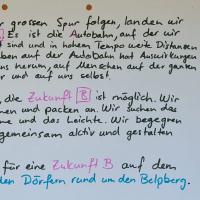 r grossen Spur folgen, landen wir
Es ist die Autobahn, auf der wir
t sind und in hohem Tempo weite Distanzen
ben auf der Autobahn hat Auswirkungen
ns herum, auf Menschen auf der ganzen
r und auf uns selbst.
, die Zukunft B ist möglich. Wir
nen und packen an. Wir suchen das
ne und das Leichte. Wir begegnen
gemeinsam aktiv und gestalten
für eine Zukunft B auf dem
den Dörfern rund um den Belpberg.